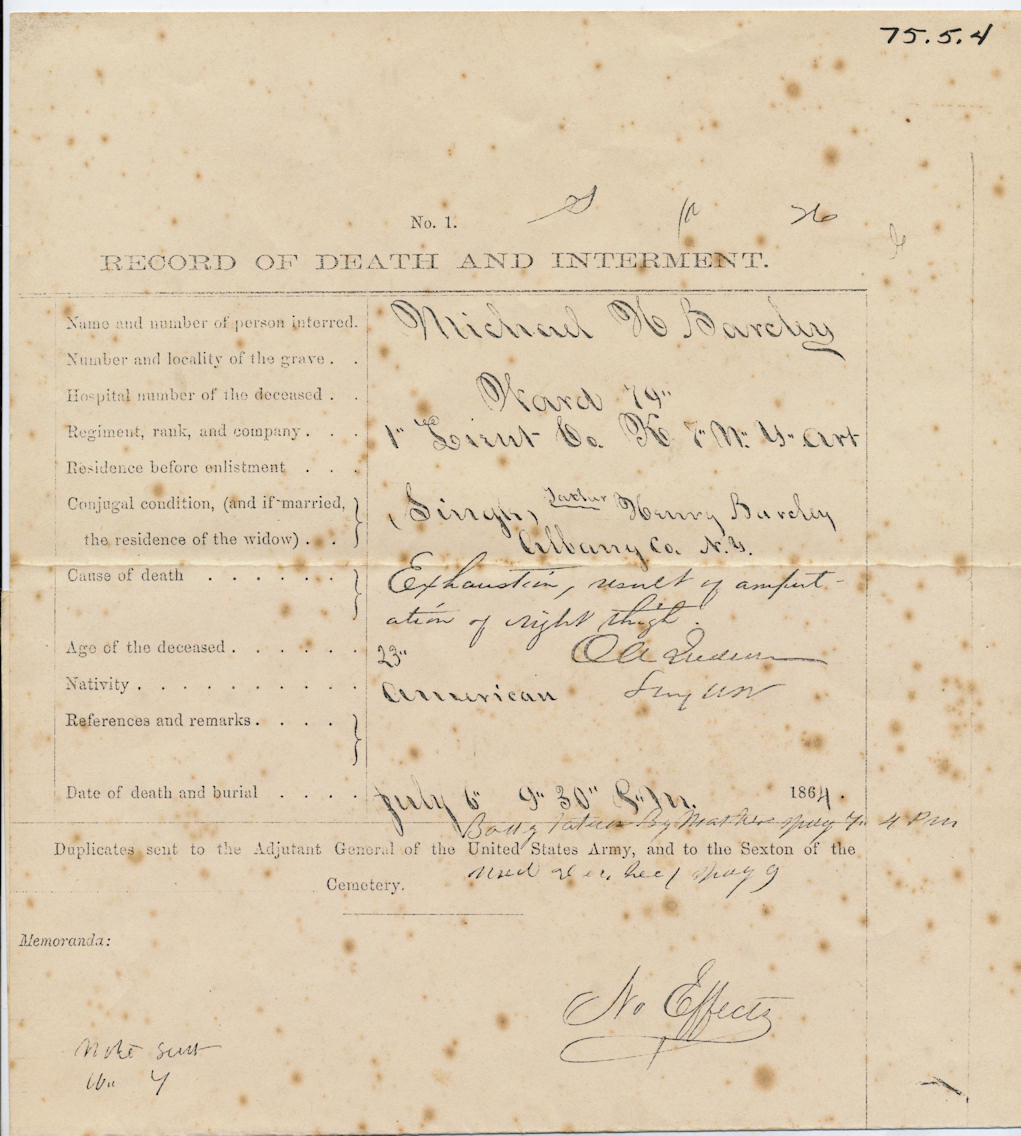 75.5.4
No. 1.
RECORD OF DEATH AND INTERMENT.
Name and number of person interred. Michael H Barcley
Number and locality of the grave . .
Hospital number of the deceased . . Ward 79"
Regiment, rank, and company . . . 1" Lieut Co. K 7" N. Y. Art
Residence before enlistment . . .
Conjugal condition, (and if married, (Single) Father Henry Barcley
the residence of the widow) . . Albany Co. N.Y.
Cause of death . . . . . . Exhaustion, result of amput-
ation of right thigh.
Age of the deceased . . . . . . 23"
Nativity . . . . . . . . . American Surg USV
References and remarks . . . .
Date of death and burial . . . . July 6" 9" 30" P.M. 1864.
Body taken By 4 PM
Duplicates sent to the Adjutant General of the United States Army, and to the Sexton of the
Cemetery.
Memoranda:
No Effects
Note sent